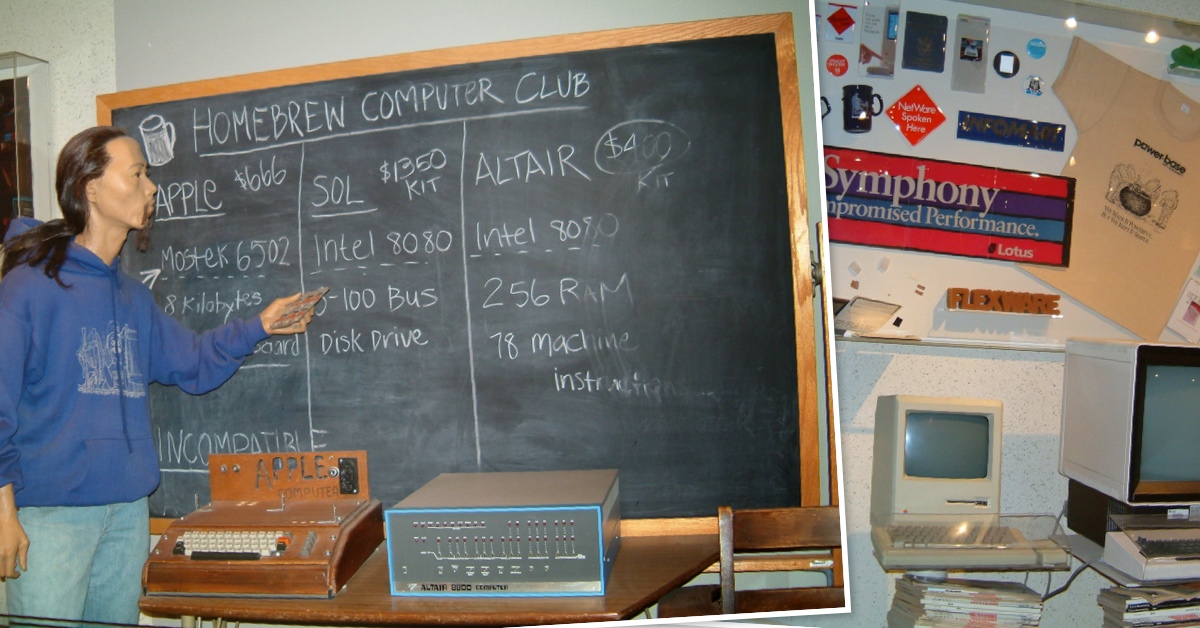 HOMEBREW COMPUTER CLUB
APPLE $666
Mostek 6502
8 Kilobytes
INCOMPATIBLE
SOL $1350
KIT
Intel 8080
S-100 Bus
Disk Drive
ALTAIR $400
KIT
Intel 8080
256 RAM
78 machine
instruction
APPLE
COMPUTER
ALTAIR 8800 COMPUTER
NetWare
Spoken
Here
INFOMART
Symphony
Performance.
Lotus
power base
FLEXWARE